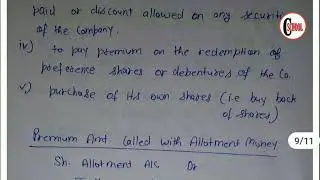 paid or discount allowed on any securit
of the Company.
iv) to pay premium on the redemption of
preference shares or debentures of the Co.
v) purchase of its own shares (i.e buy back
of shares)
Premium Amt. Called with Allotment Money
Sh. Allotment A/c Dr
SCHOOL
9/11